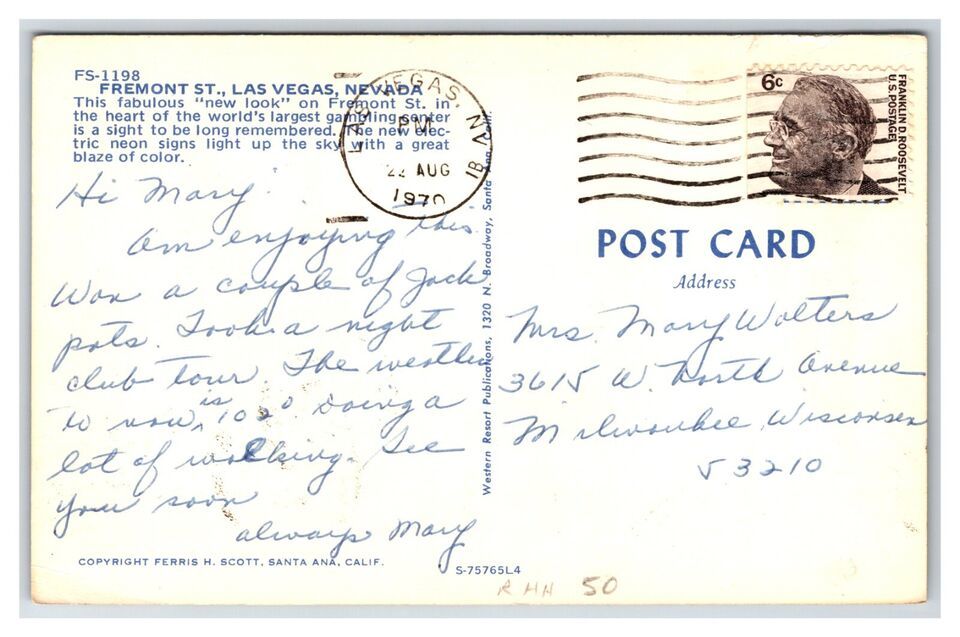 FS-1198
FREMONT ST., LAS VEGAS, NEVADA
This fabulous "new look" on Fremont St. in
the heart of the world's largest gambling center
is a sight to be long remembered. The new elec-
tric neon signs light up the sky with a great
blaze of color.
LAS VEGAS, NV 891
PM
22 AUG
1970
6c
FRANKLIN D. ROOSEVELT
U.S. POSTAGE
Hi Mary
Am enjoying this.
Won a couple of Jack
pots. Took a night
club tour. The weather
to now, is 102°. Doing a
lot of walking. See
you soon
always Mary
Western Resort Publications, 1320 N. Broadway, Santa Ana, Calif.
POST CARD
Address
Mrs. Mary Wolters
3615 W. North Avenue
Milwaukee, Wisconsin
53210
COPYRIGHT FERRIS H. SCOTT, SANTA ANA, CALIF.
S-75765L4
RHH 50